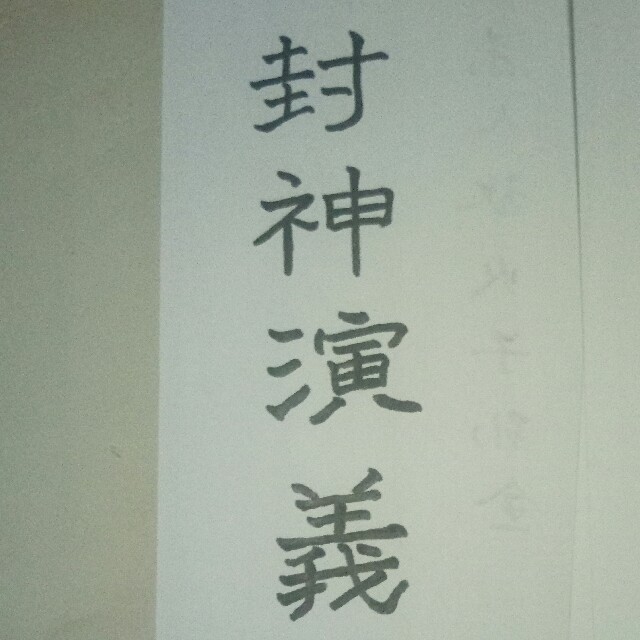 封神演義